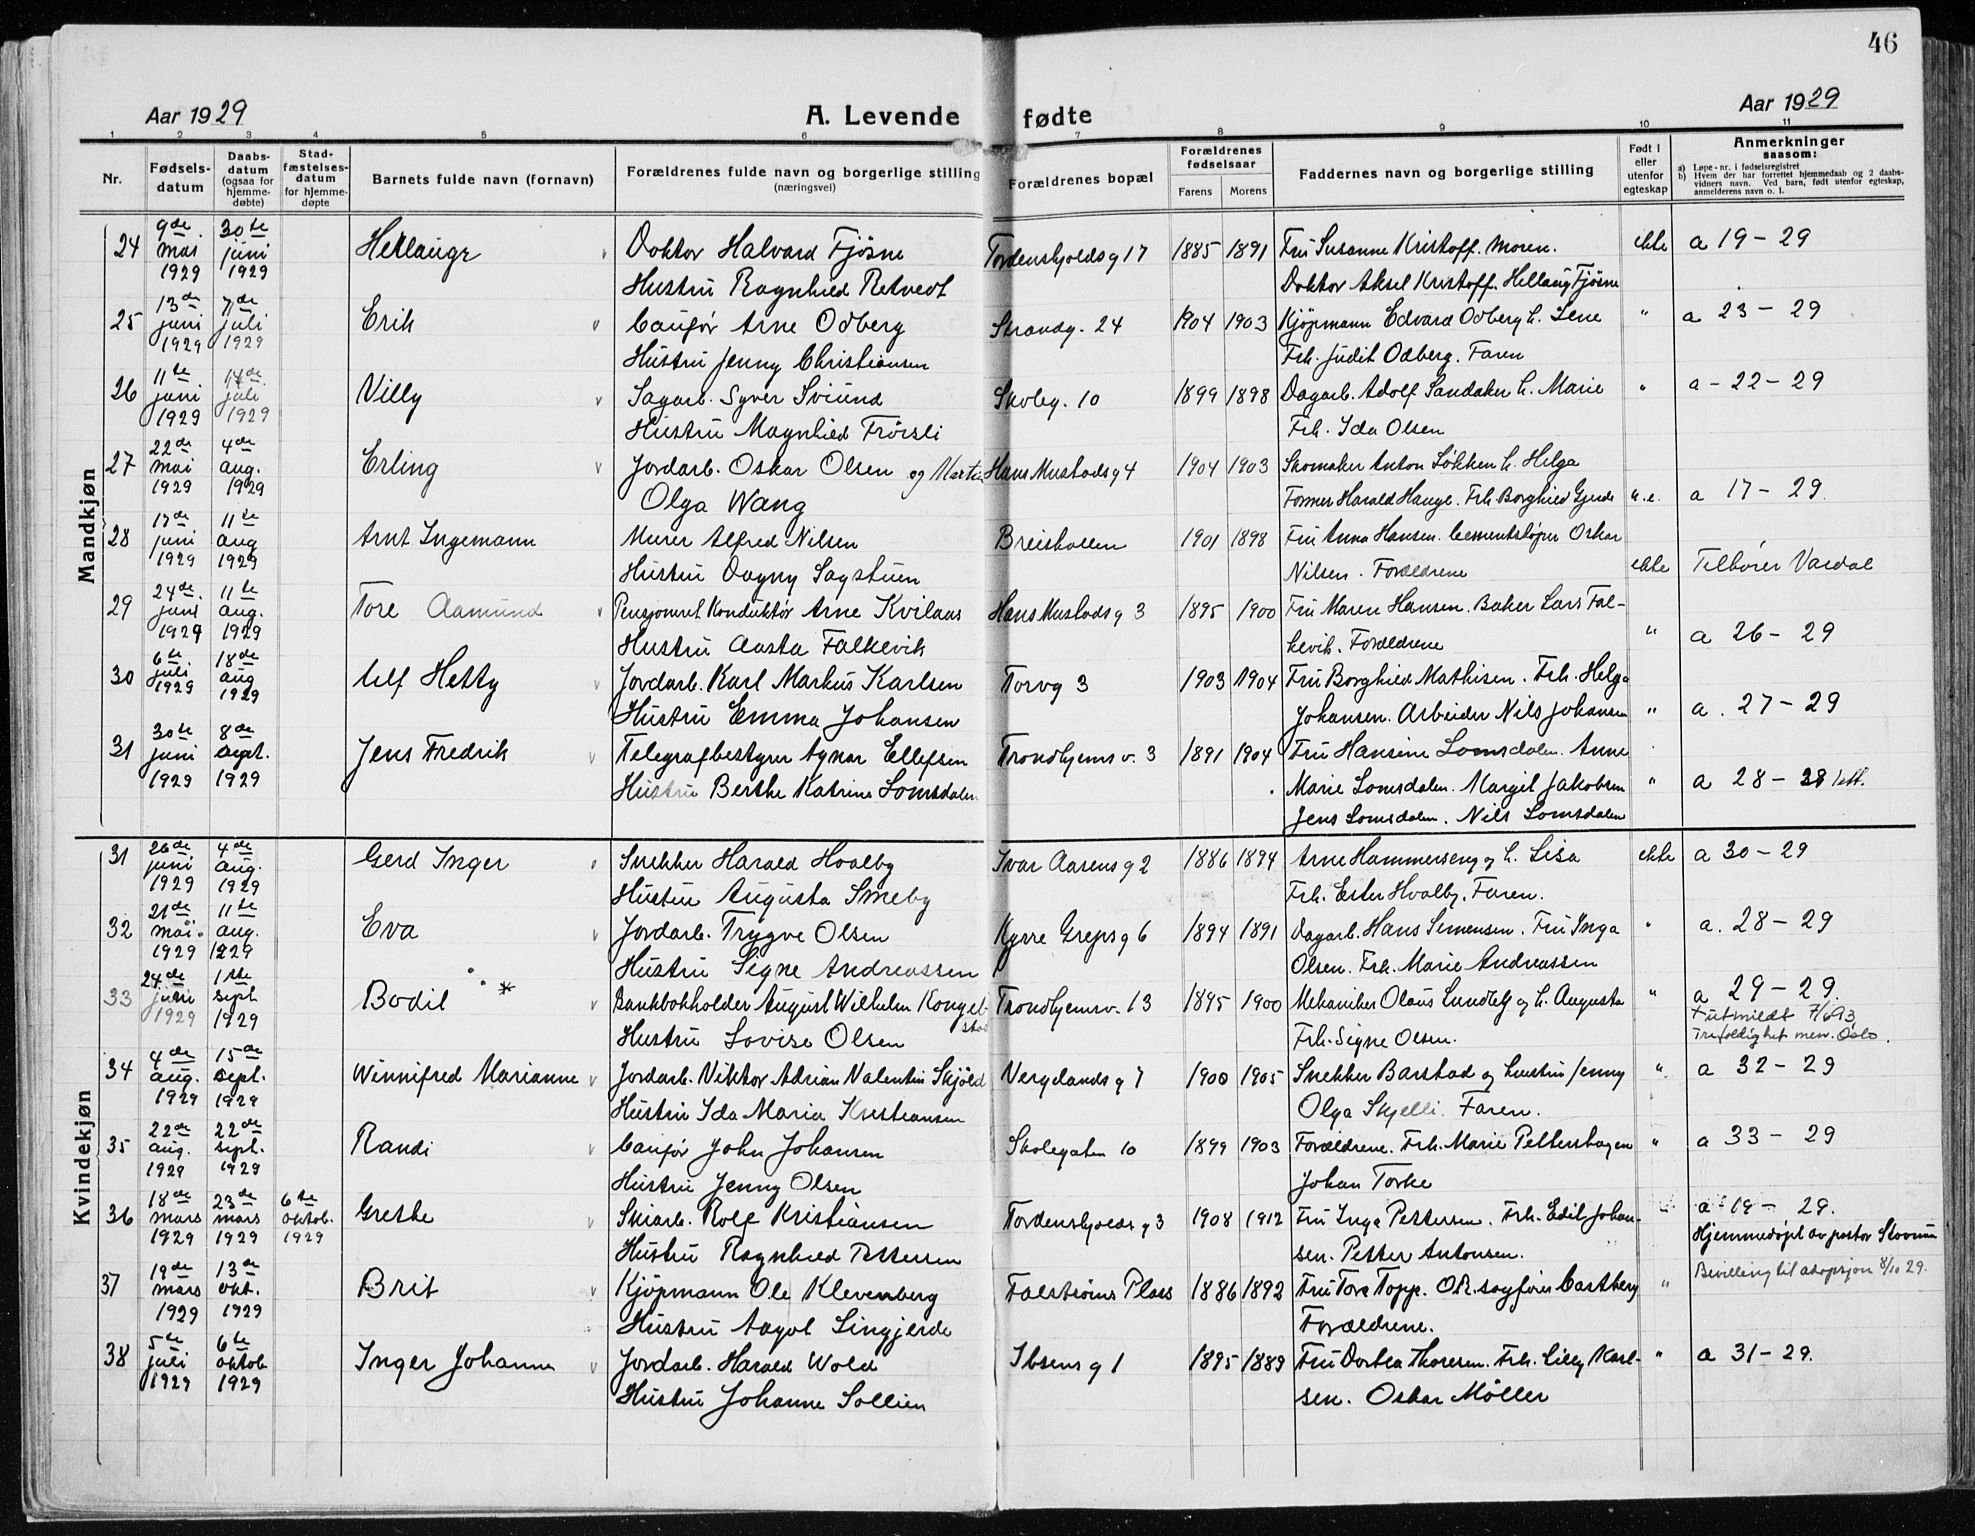 46
Aar 1929 A. Levende fødte Aar 1929
1 2 3 4 5 6 7 8 9 10 11
Nr. Fødsels-datum Daabs-datum (ogsaa for hjemme-døbte) Stad-fæstelses-datum for hjemme-døpte Barnets fulde navn (fornavn) Forældrenes fulde navn og borgerlige stilling (næringsvei) Forældrenes bopæl Forældrenes fødselsaar Farens Morens Faddernes navn og borgerlige stilling Født i eller utenfor egteskap Anmerkninger saasom:
a) Løpe-nr. i fødselsregistret
b) Hvem der har forrettet hjemmedaab og 2 daabs-vidners navn. Ved barn, født utenfor egteskap, anmelderens navn o. l.
Mandkjøn
24 9de mai 1929 30te juni 1929 Hellaugr Doktor Halvard Fjøsne Tordenskjolds g 17 1885 1891 Fru Susanne Kristoff. Moren. ekte a 19 - 29
Hustru Ragnhild Retvedt Doktor Aksel Kristoff. Hellaug Fjøsne
25 13de juni 1929 7de juli 1929 Erik Caufør Arne Odberg Strandg. 24 1904 1903 Kjøpmann Edvard Odberg h. Lene " a 23 - 29
Hustru Jenny Christiansen Frk. Judit Odberg. Faren
26 11te juni 1929 14de juli 1929 Villy Sagarb. Syver Sviund Skoleg. 10 1899 1898 Dagarb. Adolf Sandaker h. Marie " a - 22 - 29
Hustru Magnhild Frøisli Frk. Ida Olsen
27 22de mai 1929 4de aug. 1929 Erling Jordarb. Oskar Olsen og Martin Hans Mustads g 4 1904 1903 Skomaker Anton Løkken h. Helga
Olga Wang Former Harald Hauge. Frk Borghild Gjerde u.e. a 17 - 29.
28 17de juni 1929 11te aug 1929 Arnt Ingemann Murer Alfred Nilsen Breiskallen 1901 1898 Fru Anna Hansen. Cementstøper Oskar
Hustru Dagny Sagstuen Nilsen. Forældrene ekte Tilhører Vardal
29 24de juni 1929 11te aug. 1929 Tore Aamund Pensjonert Konduktør Arne Kvilaas Hans Mustads g 3 1895 1900 Fru Maren Hansen. Baker Lars Fal-
Hustru Aasta Falkevik kevik. Forældrene " a 26 - 29
30 6te juli 1929 18de aug 1929 Ulf Hetty Jordarb. Karl Markus Karlsen Torvg 3 1903 1904 Fru Borghild Mathisen. Frk. Helga
Hustru Emma Johansen Johansen. Arbeider Nils Johansen " a. 27 - 29
31 30te juni 1929 8de sept. 1929 Jens Fredrik Telegrafbestyrer Agnar Ellefsen Trondhjemsv. 3 1891 1904 Fru Hansine Lomsdalen. Anne
Hustru Berthe Katrine Lomsdalen Marie Lomsdalen. Margit Jakobsen " a 28 - 28
Jens Lomsdalen. Nils Lomsdalen
Kvindekjøn
31 26de juni 1929 4de aug. 1929 Gerd Inger Snekker Harald Hvalby Ivar Aasens g 2 1886 1894 Arne Hammerseng og h. Lisa ekte a 30 - 29
Hustru Augusta Smeby Frk. Ester Hvalby. Faren.
32 21de mai. 1929 11te aug. 1929 Eva Jordarb. Trygve Olsen Kyrre Greps g 6 1894 1891 Dagarb. Hans Simensen. Fru Inga " a. 28 - 29
Hustru Signe Andreassen Olsen. Frk. Marie Andreassen
33 24de juni 1929 1ste sept 1929 Bodil * Bankbokholder August Wilhelm Kongel- Trondhjemsv. 13 1895 1900 Mekaniker Olaus Lundby og h. Augusta " a 29 - 29.
Hustru Lovise Olsen Frk. Signe Olsen. utmeldt 7/6 93, Trefoldighet men. Oslo.
34 4de aug. 1929 15de sept. 1929 Winnifred Marianne Jordarb. Viktor Adrian Valentin Skjøld Vergelands g 7 1900 1905 Snekker Barstad og hustru Jenny " a 32 - 29
Hustru Ida Maria Kristiansen Olga Skjelli. Faren.
35 22de aug. 1929 22de sept. 1929 Randi Caufør John Johansen Skolegaten 10 1899 1903 Forældrene. Frk. Marie Pettershagen " a 33 - 29
Hustru Jenny Olsen Johan Torke
36 18de mars 1929 23de mars 1929 6te oktob. 1929 Grethe Skiarb. Rolf Kristiansen Tordenskjolds g 3 1908 1912 Fru Inga Pettersen. Frk. Edit Johan- " a 19 - 29.
Hustru Ragnhild Pettersen sen. Petter Antonsen. Hjemmedøpt av pastor Skovrun
Bevilling til adopsjon 8/10 29.
37 19de mars 1929 13de okt. 1929 Brit Kjøpmann Ole Klevenberg Falstrøms Plass 1886 1892 Fru Tora Topp. OR.sagfører Castberg "
Hustru Aagot Lingjerde Forældrene.
38 5te juli 1929 6te oktob 1929 Inger Johanne Jordarb. Harald Wold Ibsens g 1 1895 1889 Fru Dortea Thoresen. Frk. Lilly Karl- " a 31 - 29.
Hustru Johanne Sollien sen. Oskar Møller